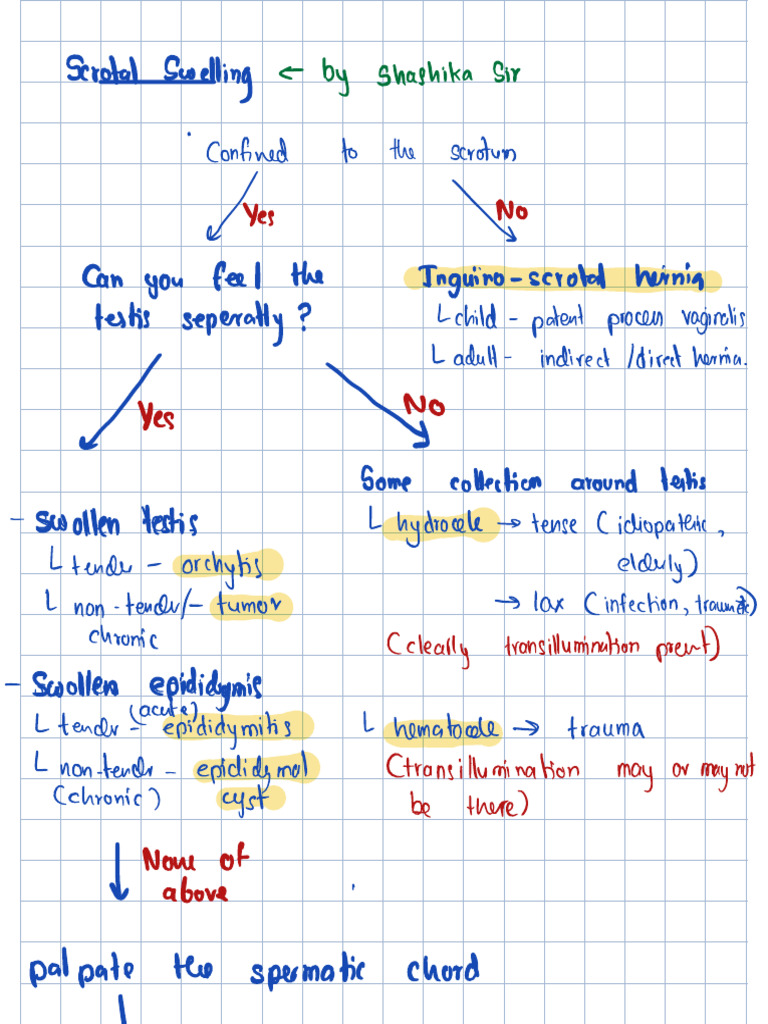 Scrotal Swelling ← by Shashika Sir
Confined to the scrotum
Yes
No
Can you feel the
testis seperatly?
Inguino-scrotal hernia
L child - patent proces vaginalis
L adult - indirect / direct hernia.
Yes
No
- Swollen testis
L tender - orchytis
L non-tender/- tumor
chronic
- Swollen epididymis
(acute)
L tender - epididymitis
L non-tender - epididymal
(chronic) cyst
Some collection around testis
L hydrocele → tense (idiopathic,
elderly)
→ lax (infection, traumatic)
(cleally transillumination prent)
L hematocele → trauma
(transillumination may or may not
be there)
↓ None of
above
palpate the spermatic chord